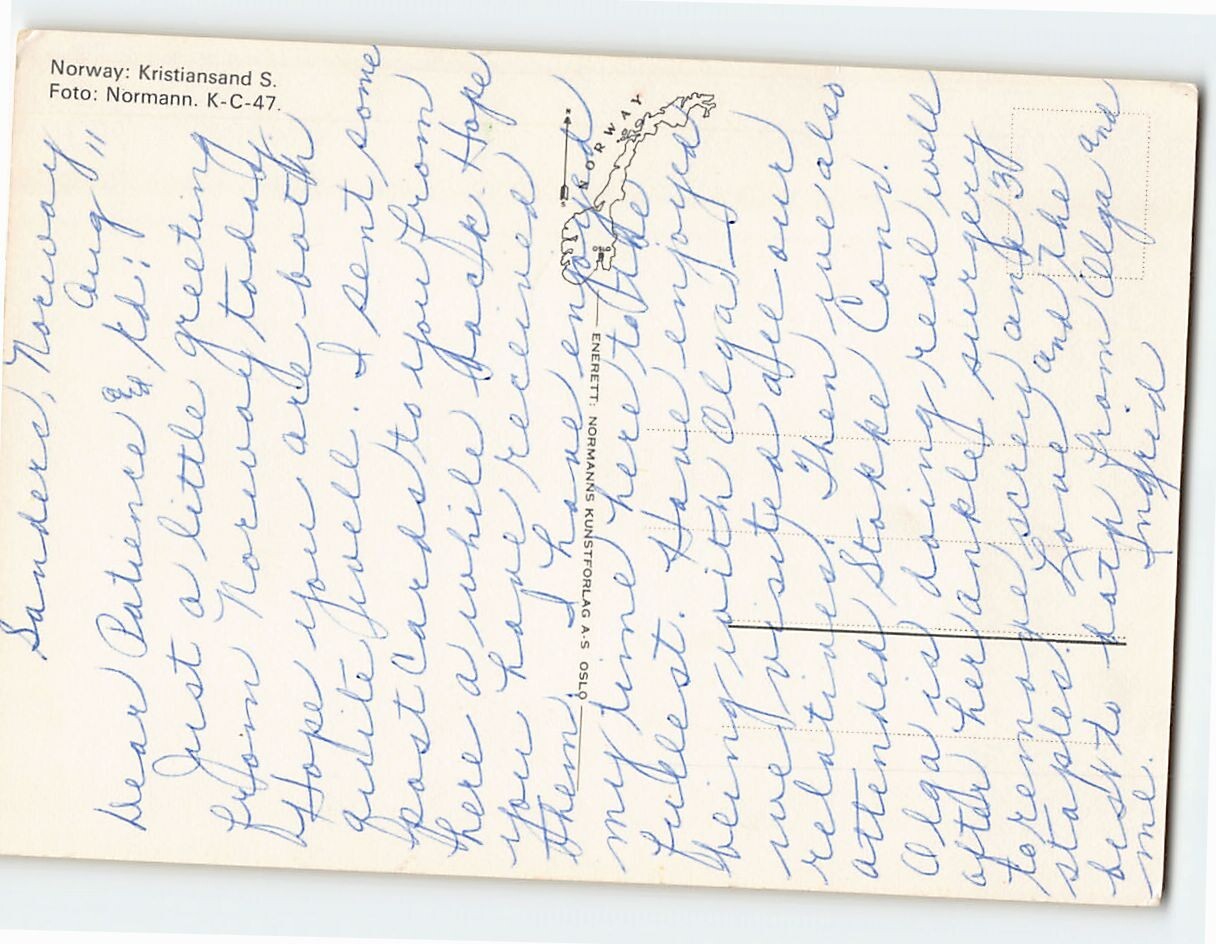 Norway: Kristiansand S.
Foto: Normann. K-C-47.
NORWAY
OSLO
ENERETT: NORMANNS KUNSTFORLAG A-S OSLO
Sandere, Norway
Aug 11
Dear Patience & Ed:
Just a little greeting
from Norway today.
Hope you are both
quite well. I sent some
post cards to you from
here a while back. Hope
you have received
them. I have enjoyed
my time here to the
fullest. Have enjoyed
being with Olga
we visited all our
relatives. Then we also
attended Stakke Con.
Olga is doing real well
after her ankle surgery
to remove screw and 30
staples. Love and the
best to both from Olga and
me. Ingrid